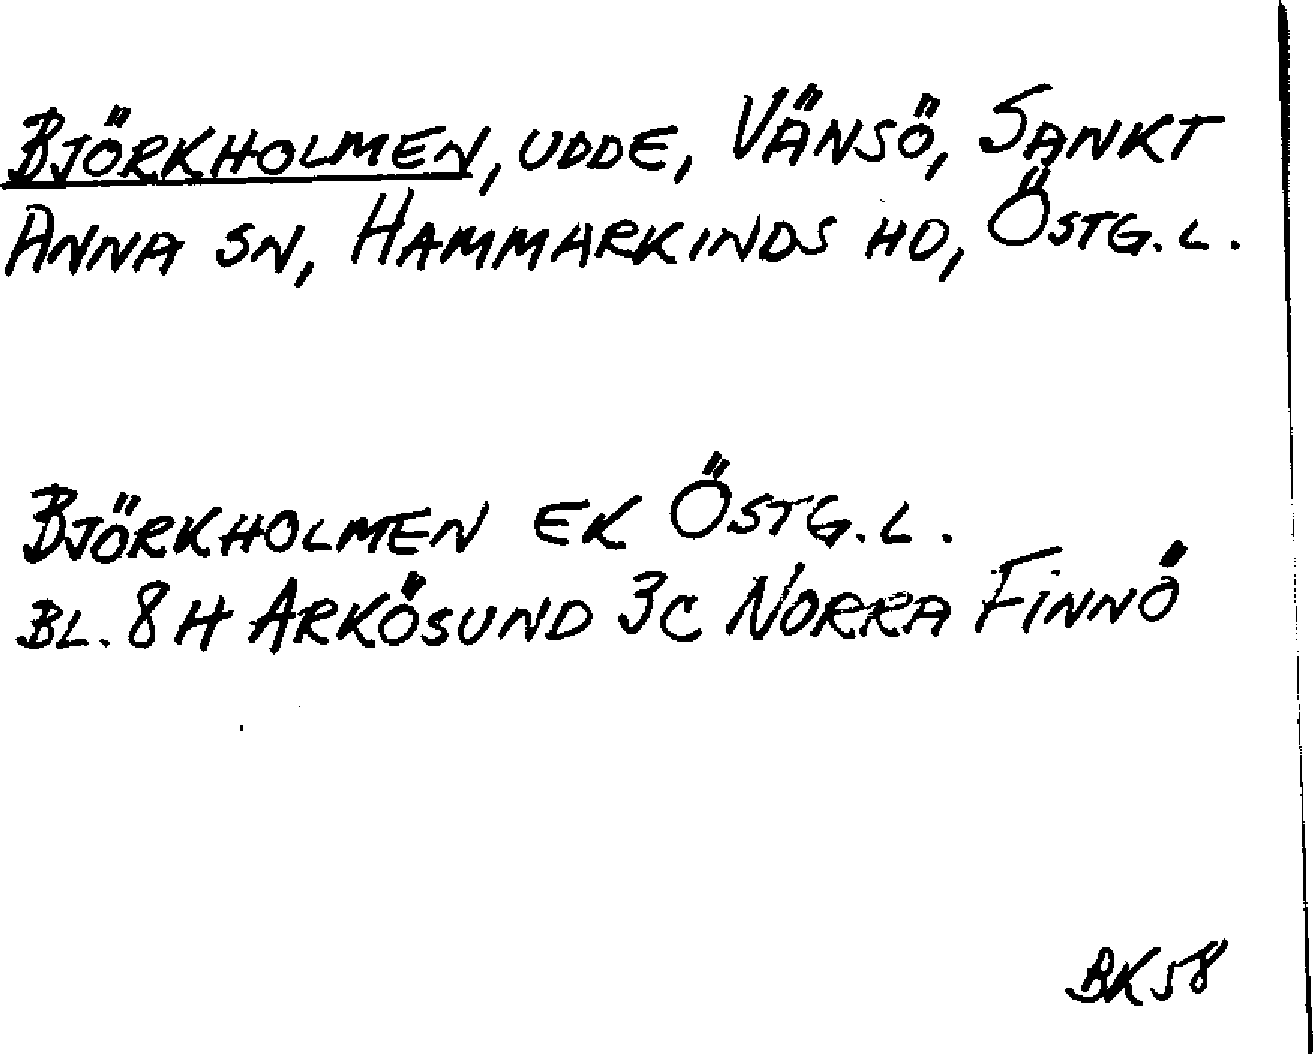 BJÖRKHOLMEN, UDDE, VÄNSÖ, SANKT
ANNA SN, HAMMARKINDS HD, ÖSTG.L.
BJÖRKHOLMEN EK ÖSTG.L.
BL. 8H ARKÖSUND 3C NORRA FINNÖ
BK58